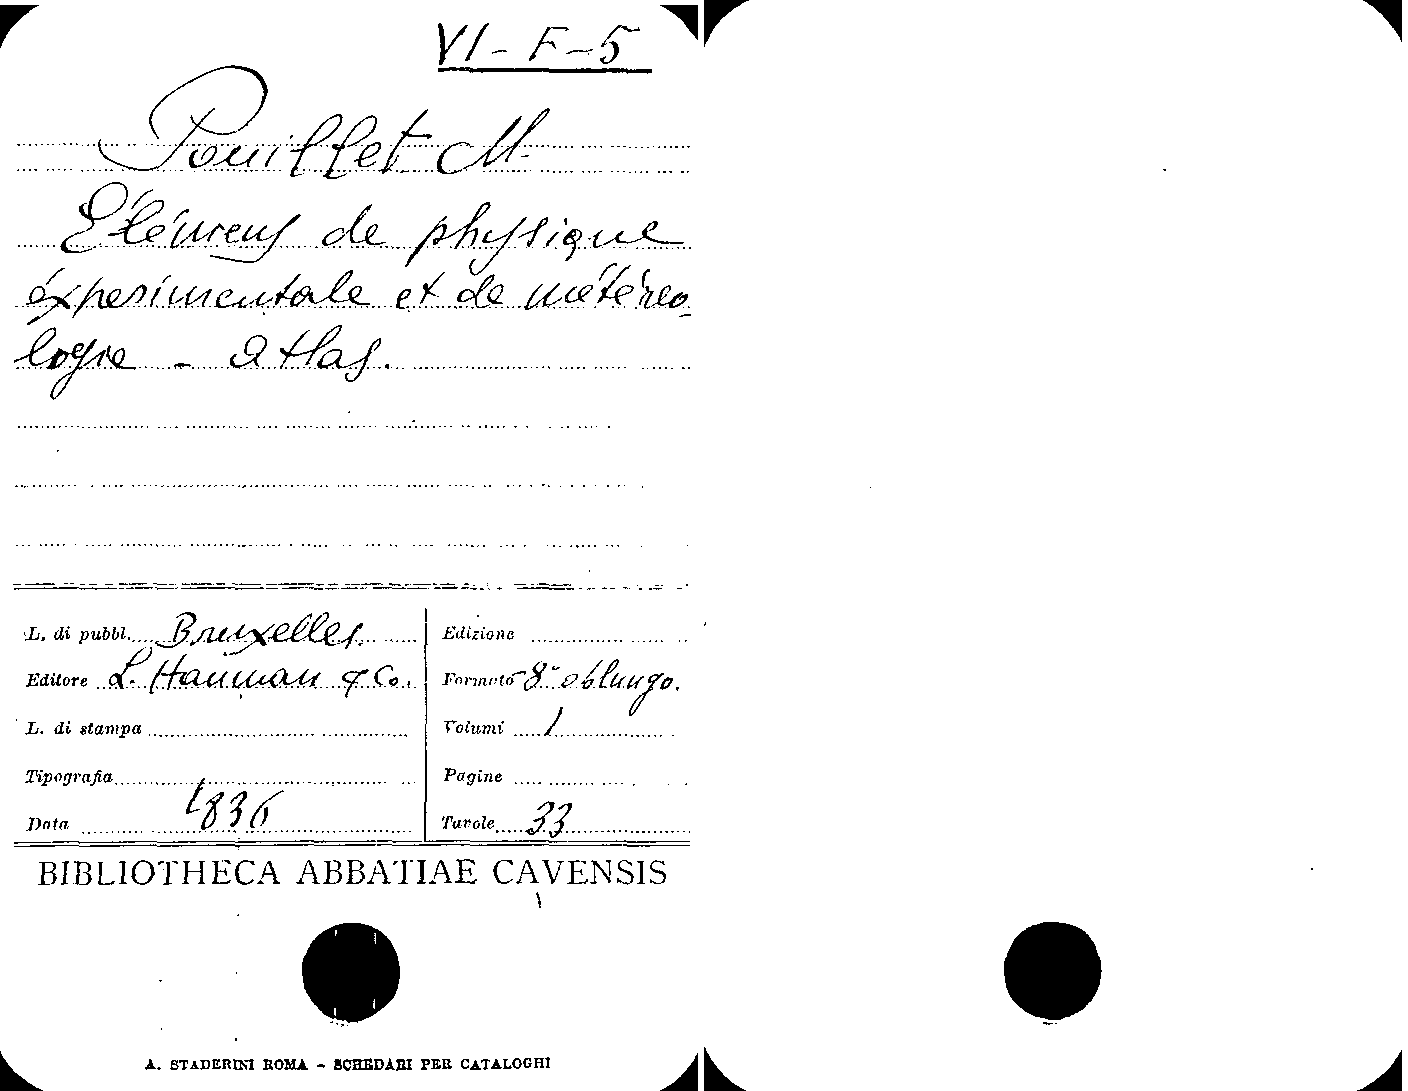 VI-F-5
Pouillet M.
Élémens de physique
éxperimentale et de météreo-
logie - atlas.
L. di pubbl. Bruxelles.
Editore L. Hauman & Co.
L. di stampa
Tipografia
Data 1836
Edizione
Formato 8° oblungo.
Volumi 1
Pagine
Tavole 33
BIBLIOTHECA ABBATIAE CAVENSIS
A. STADERINI ROMA - SCHEDARI PER CATALOGHI